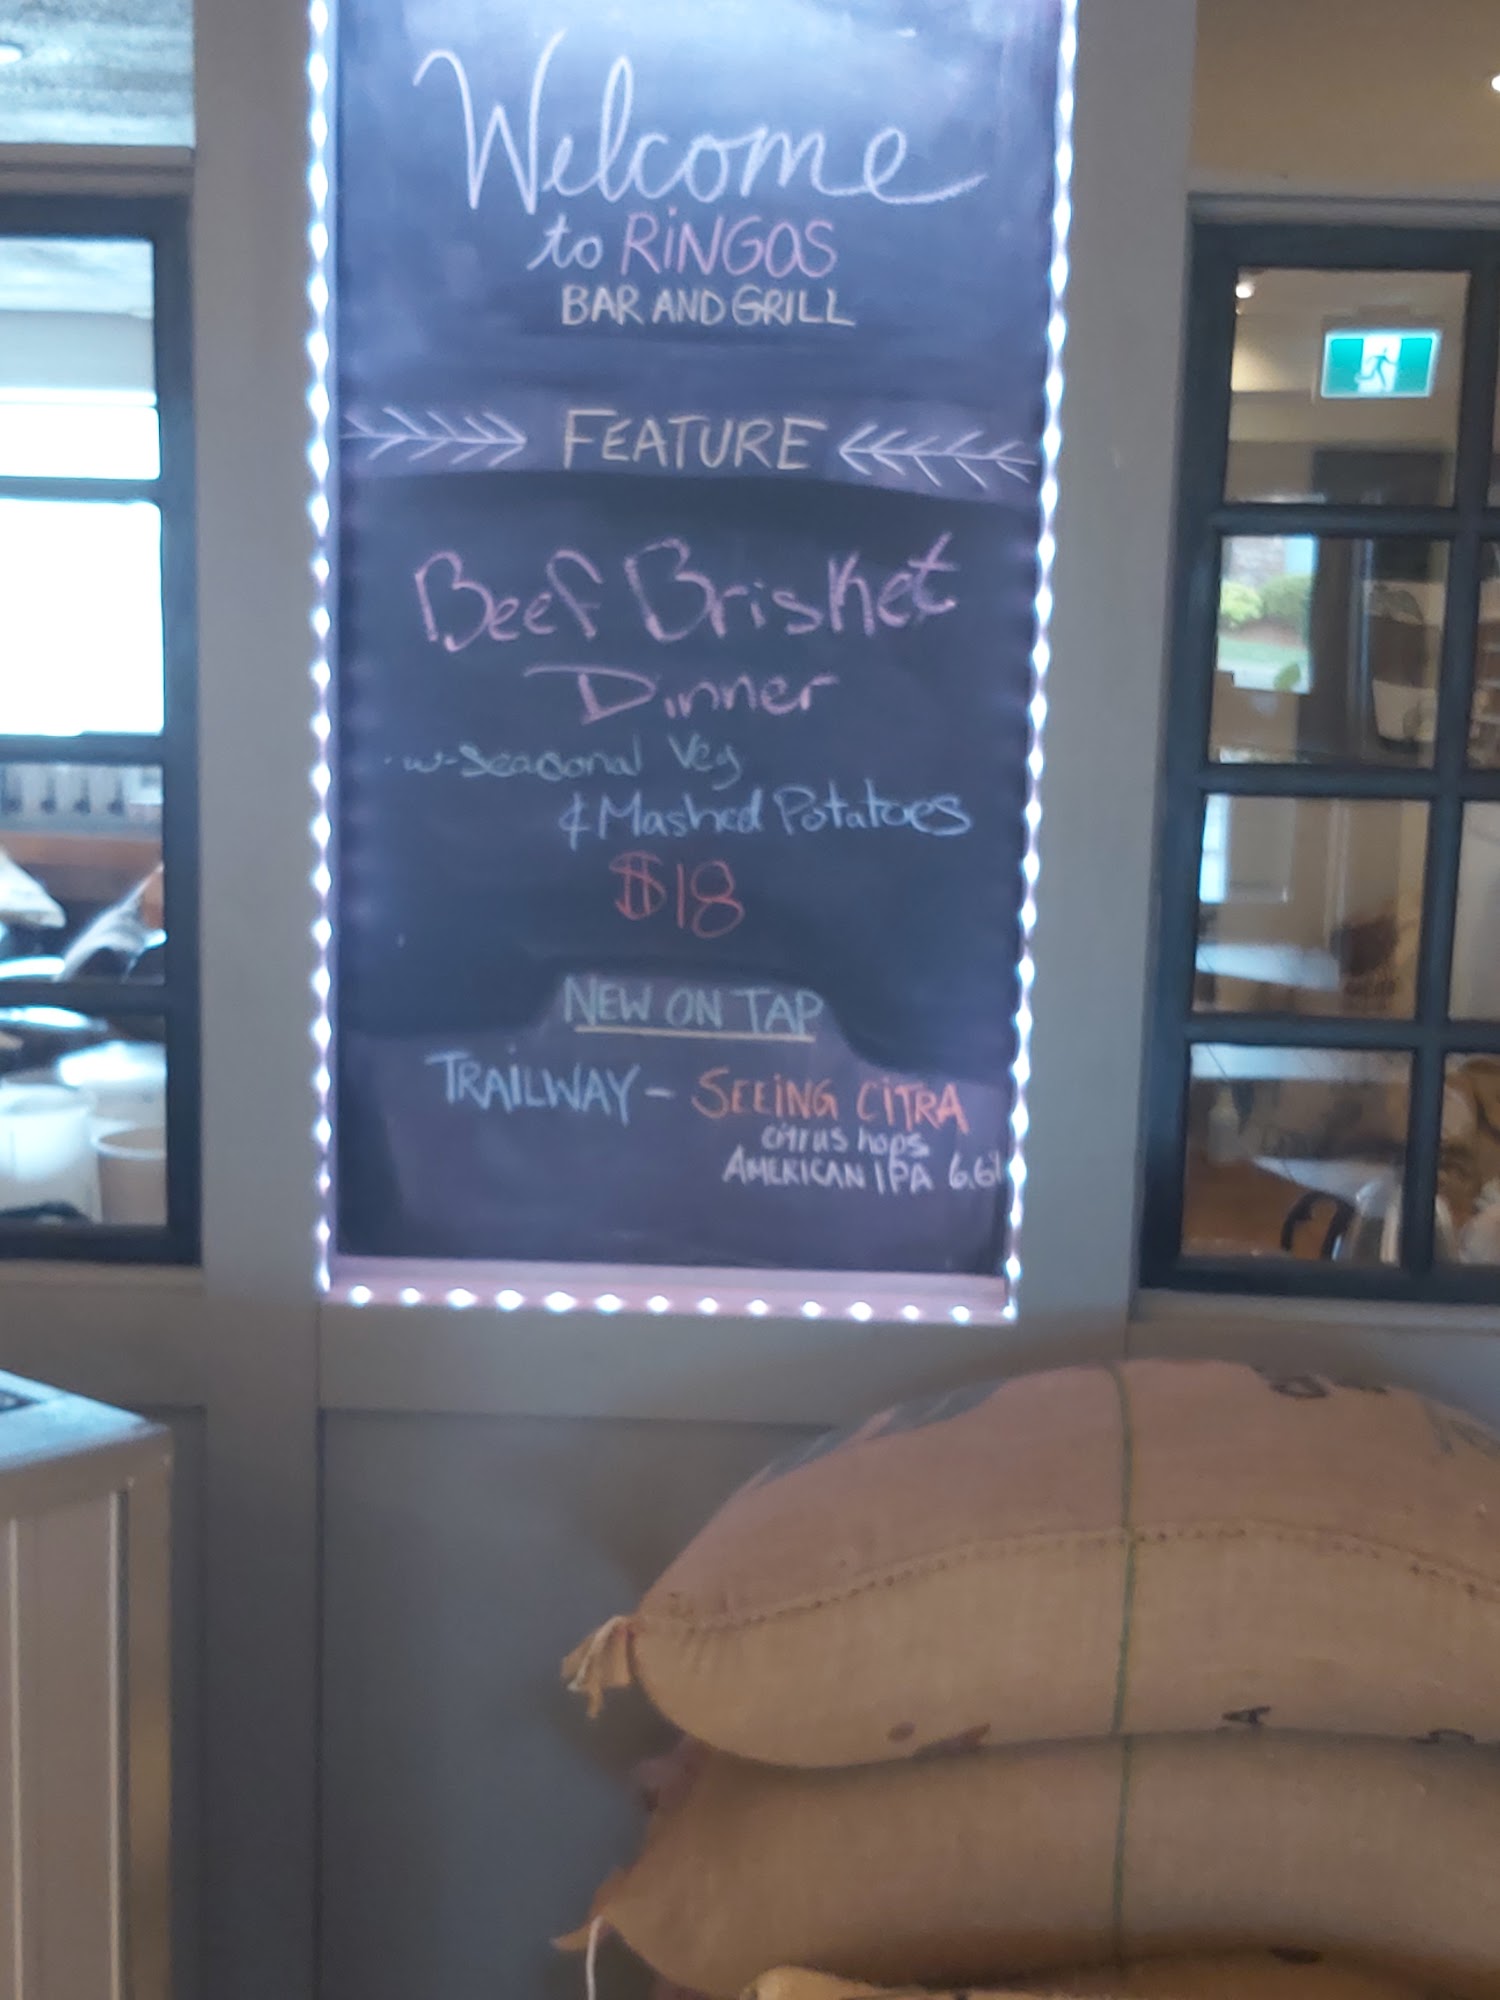 Welcome
to RiNGOS
BAR AND GRILL
FEATURE
Beef Brisket
Dinner
w- Seasonal Veg
& Mashed Potatoes
$18
NEW ON TAP
TRAiLWAY - SEEiNG CiTRA
citrus hops
AMERICAN IPA 6.6%